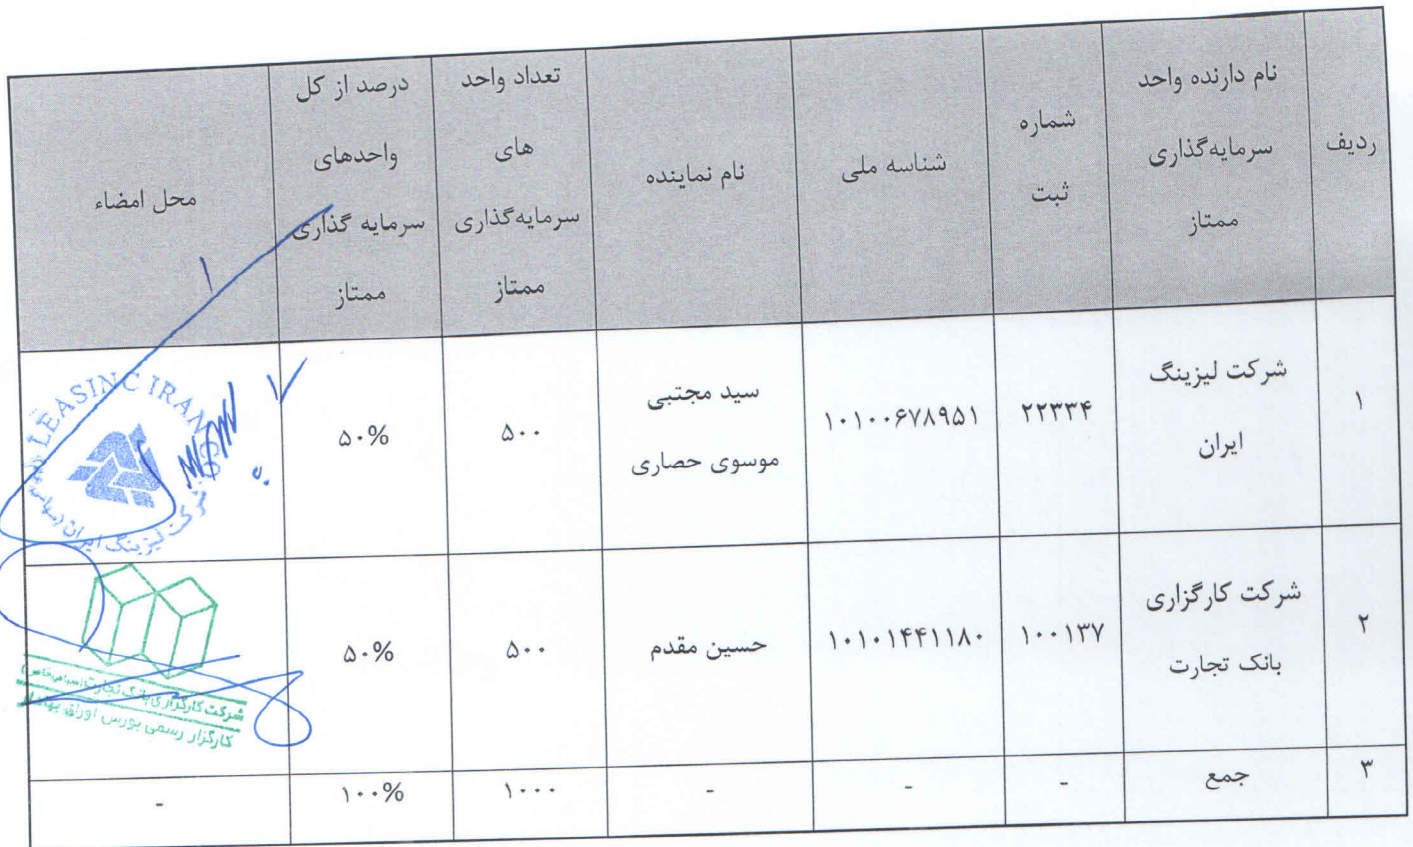 ردیف
نام دارنده واحد
سرمایه‌گذاری
ممتاز
شماره
ثبت
شناسه ملی
نام نماینده
تعداد واحد
های
سرمایه‌گذاری
ممتاز
درصد از کل
واحدهای
سرمایه گذاری
ممتاز
محل امضاء
۱
شرکت لیزینگ
ایران
۲۲۳۳۴
۱۰۱۰۰۶۷۸۹۵۱
سید مجتبی
موسوی حصاری
۵۰۰
۵۰%
LEASINC IRAN
شرکت لیزینگ ایران
۲
شرکت کارگزاری
بانک تجارت
۱۰۰۱۳۷
۱۰۱۰۱۴۴۱۱۸۰
حسین مقدم
۵۰۰
۵۰%
شرکت کارگزاری بانک تجارت (سهامی خاص)
کارگزار رسمی بورس اوراق بهادار
۳
جمع
-
-
-
۱۰۰۰
۱۰۰%
-